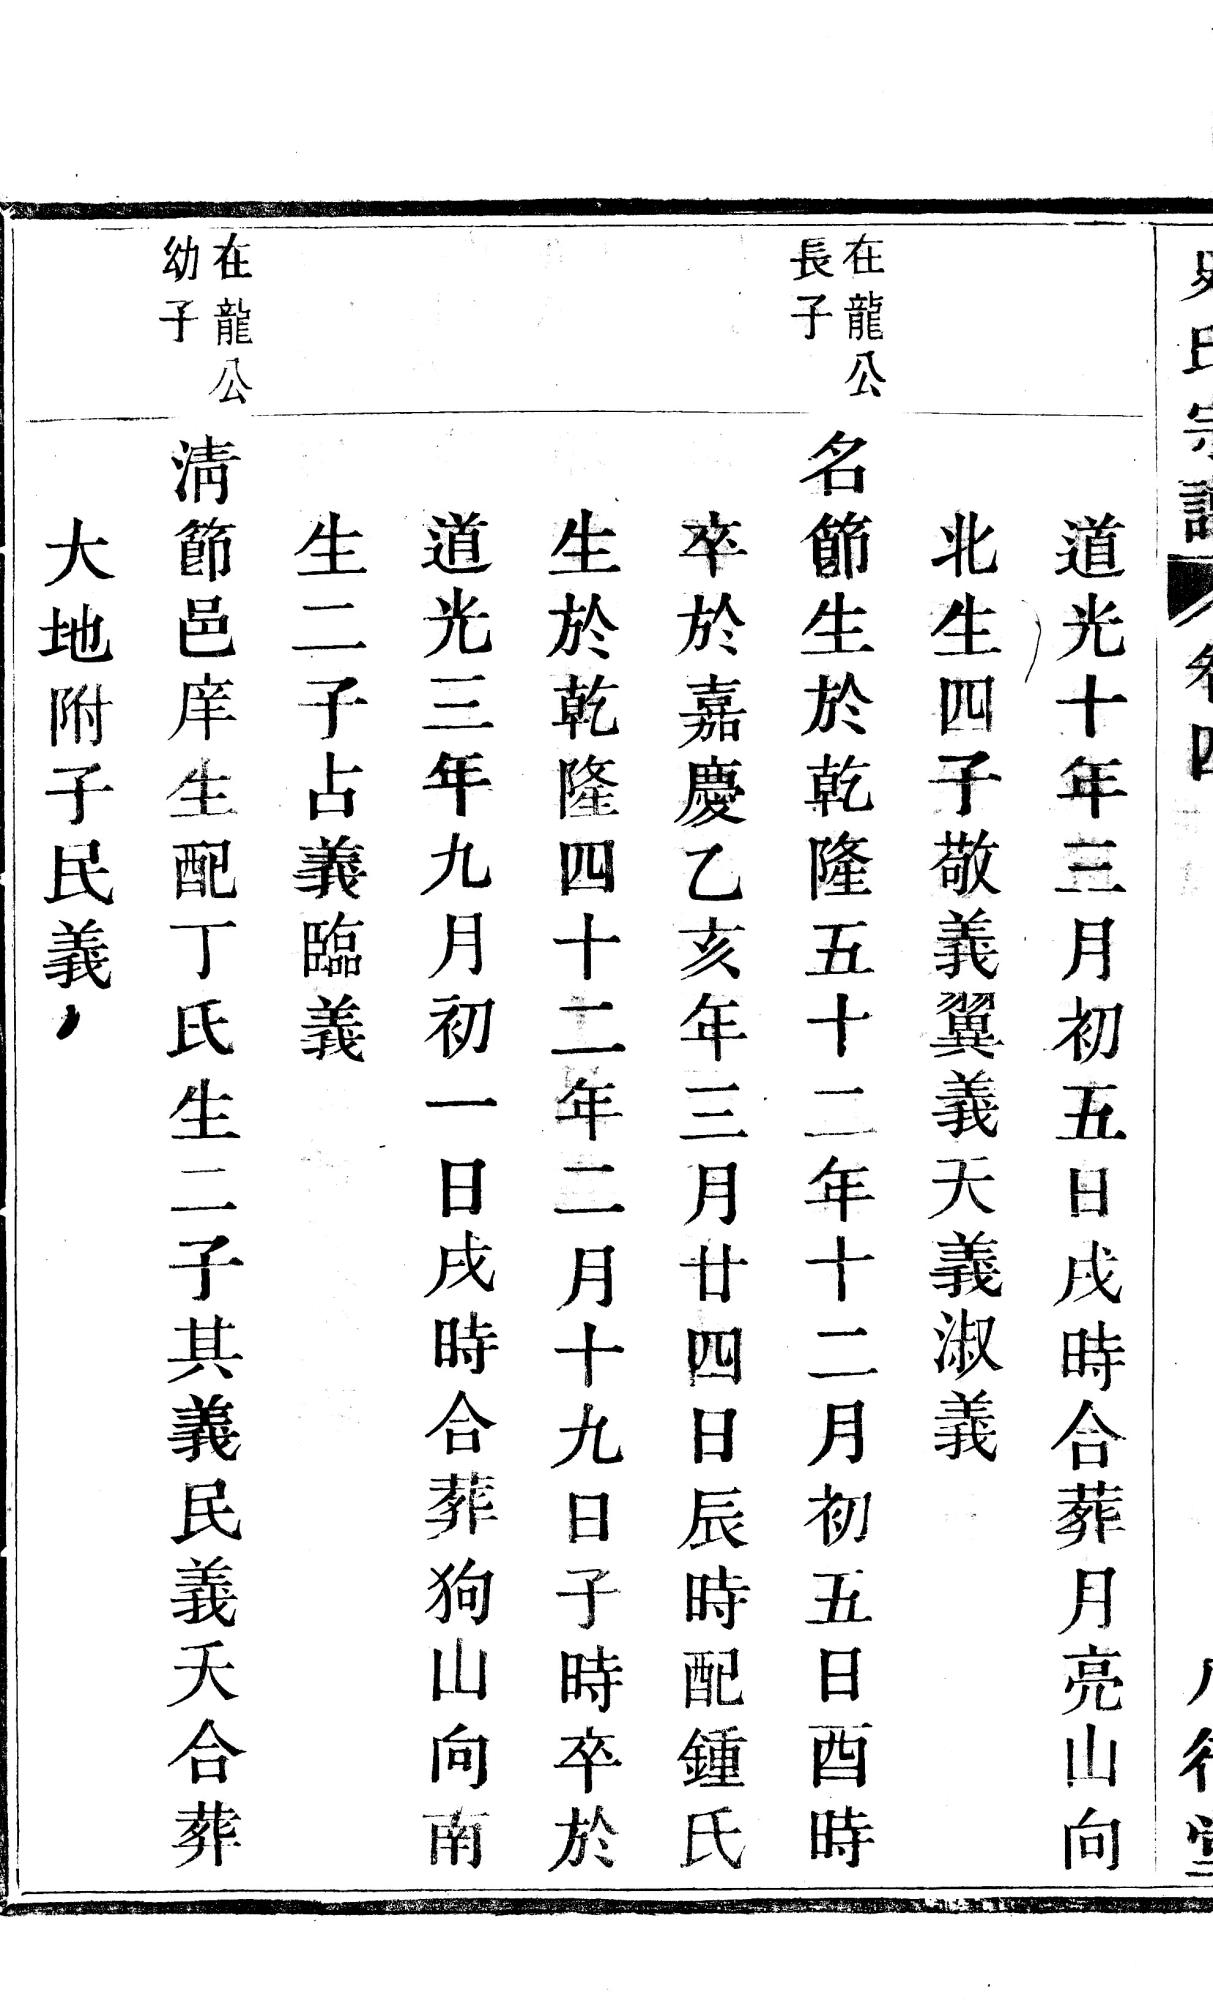 史氏宗譜
卷四
八行堂
道光十年三月初五日戌時合葬月亮山向
北生四子敬義翼義天義淑義
在龍公
長子
名節生於乾隆五十二年十二月初五日酉時
卒於嘉慶乙亥年三月廿四日辰時配鍾氏
生於乾隆四十二年二月十九日子時卒於
道光三年九月初一日戌時合葬狗山向南
生二子占義臨義
在龍公
幼子
淸節邑庠生配丁氏生二子其義民義夭合葬
大地附子民義